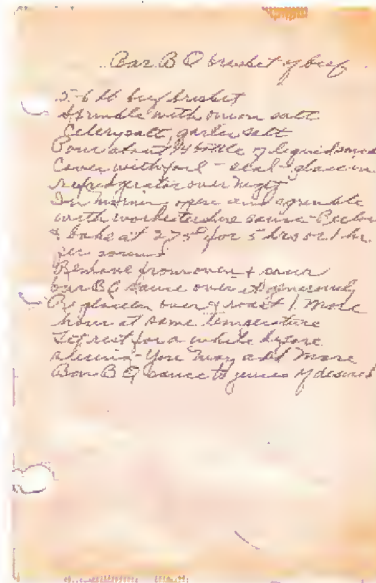 Bar B Q brisket of beef
5-6 lb beef brisket
Sprinkle with onion salt
Celery salt, garlic salt
Pour about 1/4 bottle of liquid smoke
Cover with foil - seal - place in
refrigerator over night
In morning open and sprinkle
with worchestershire sauce -
& bake at 275° for 5 hrs or 1 hr.
per
Remove from oven & pour
bar BQ sauce over it generously
Re place in oven & roast 1 more
hour at same temperature
Let rest for a while before
slicing - You may add more
Bar B Q sauce to juices if desired